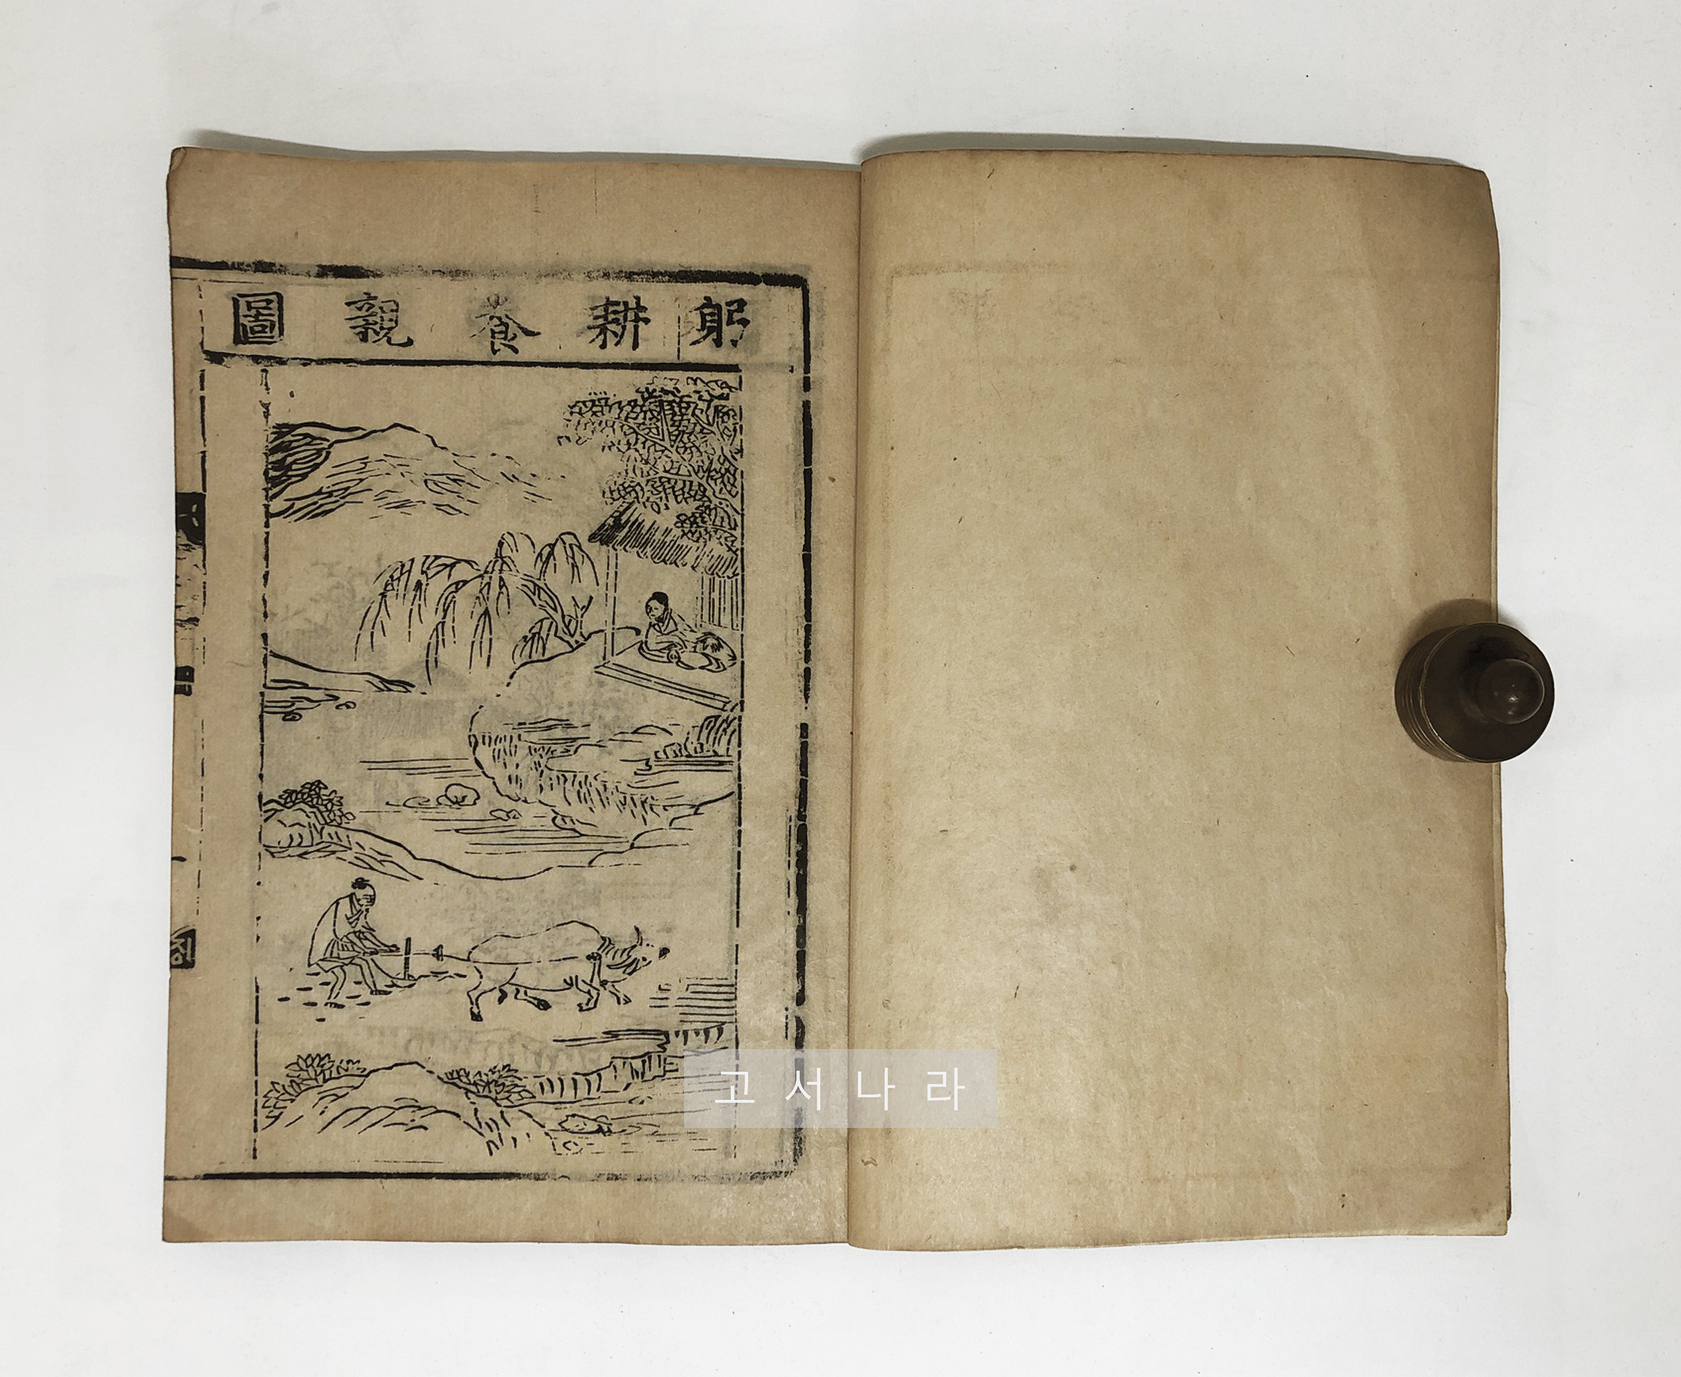 躬耕養親圖
고서나라